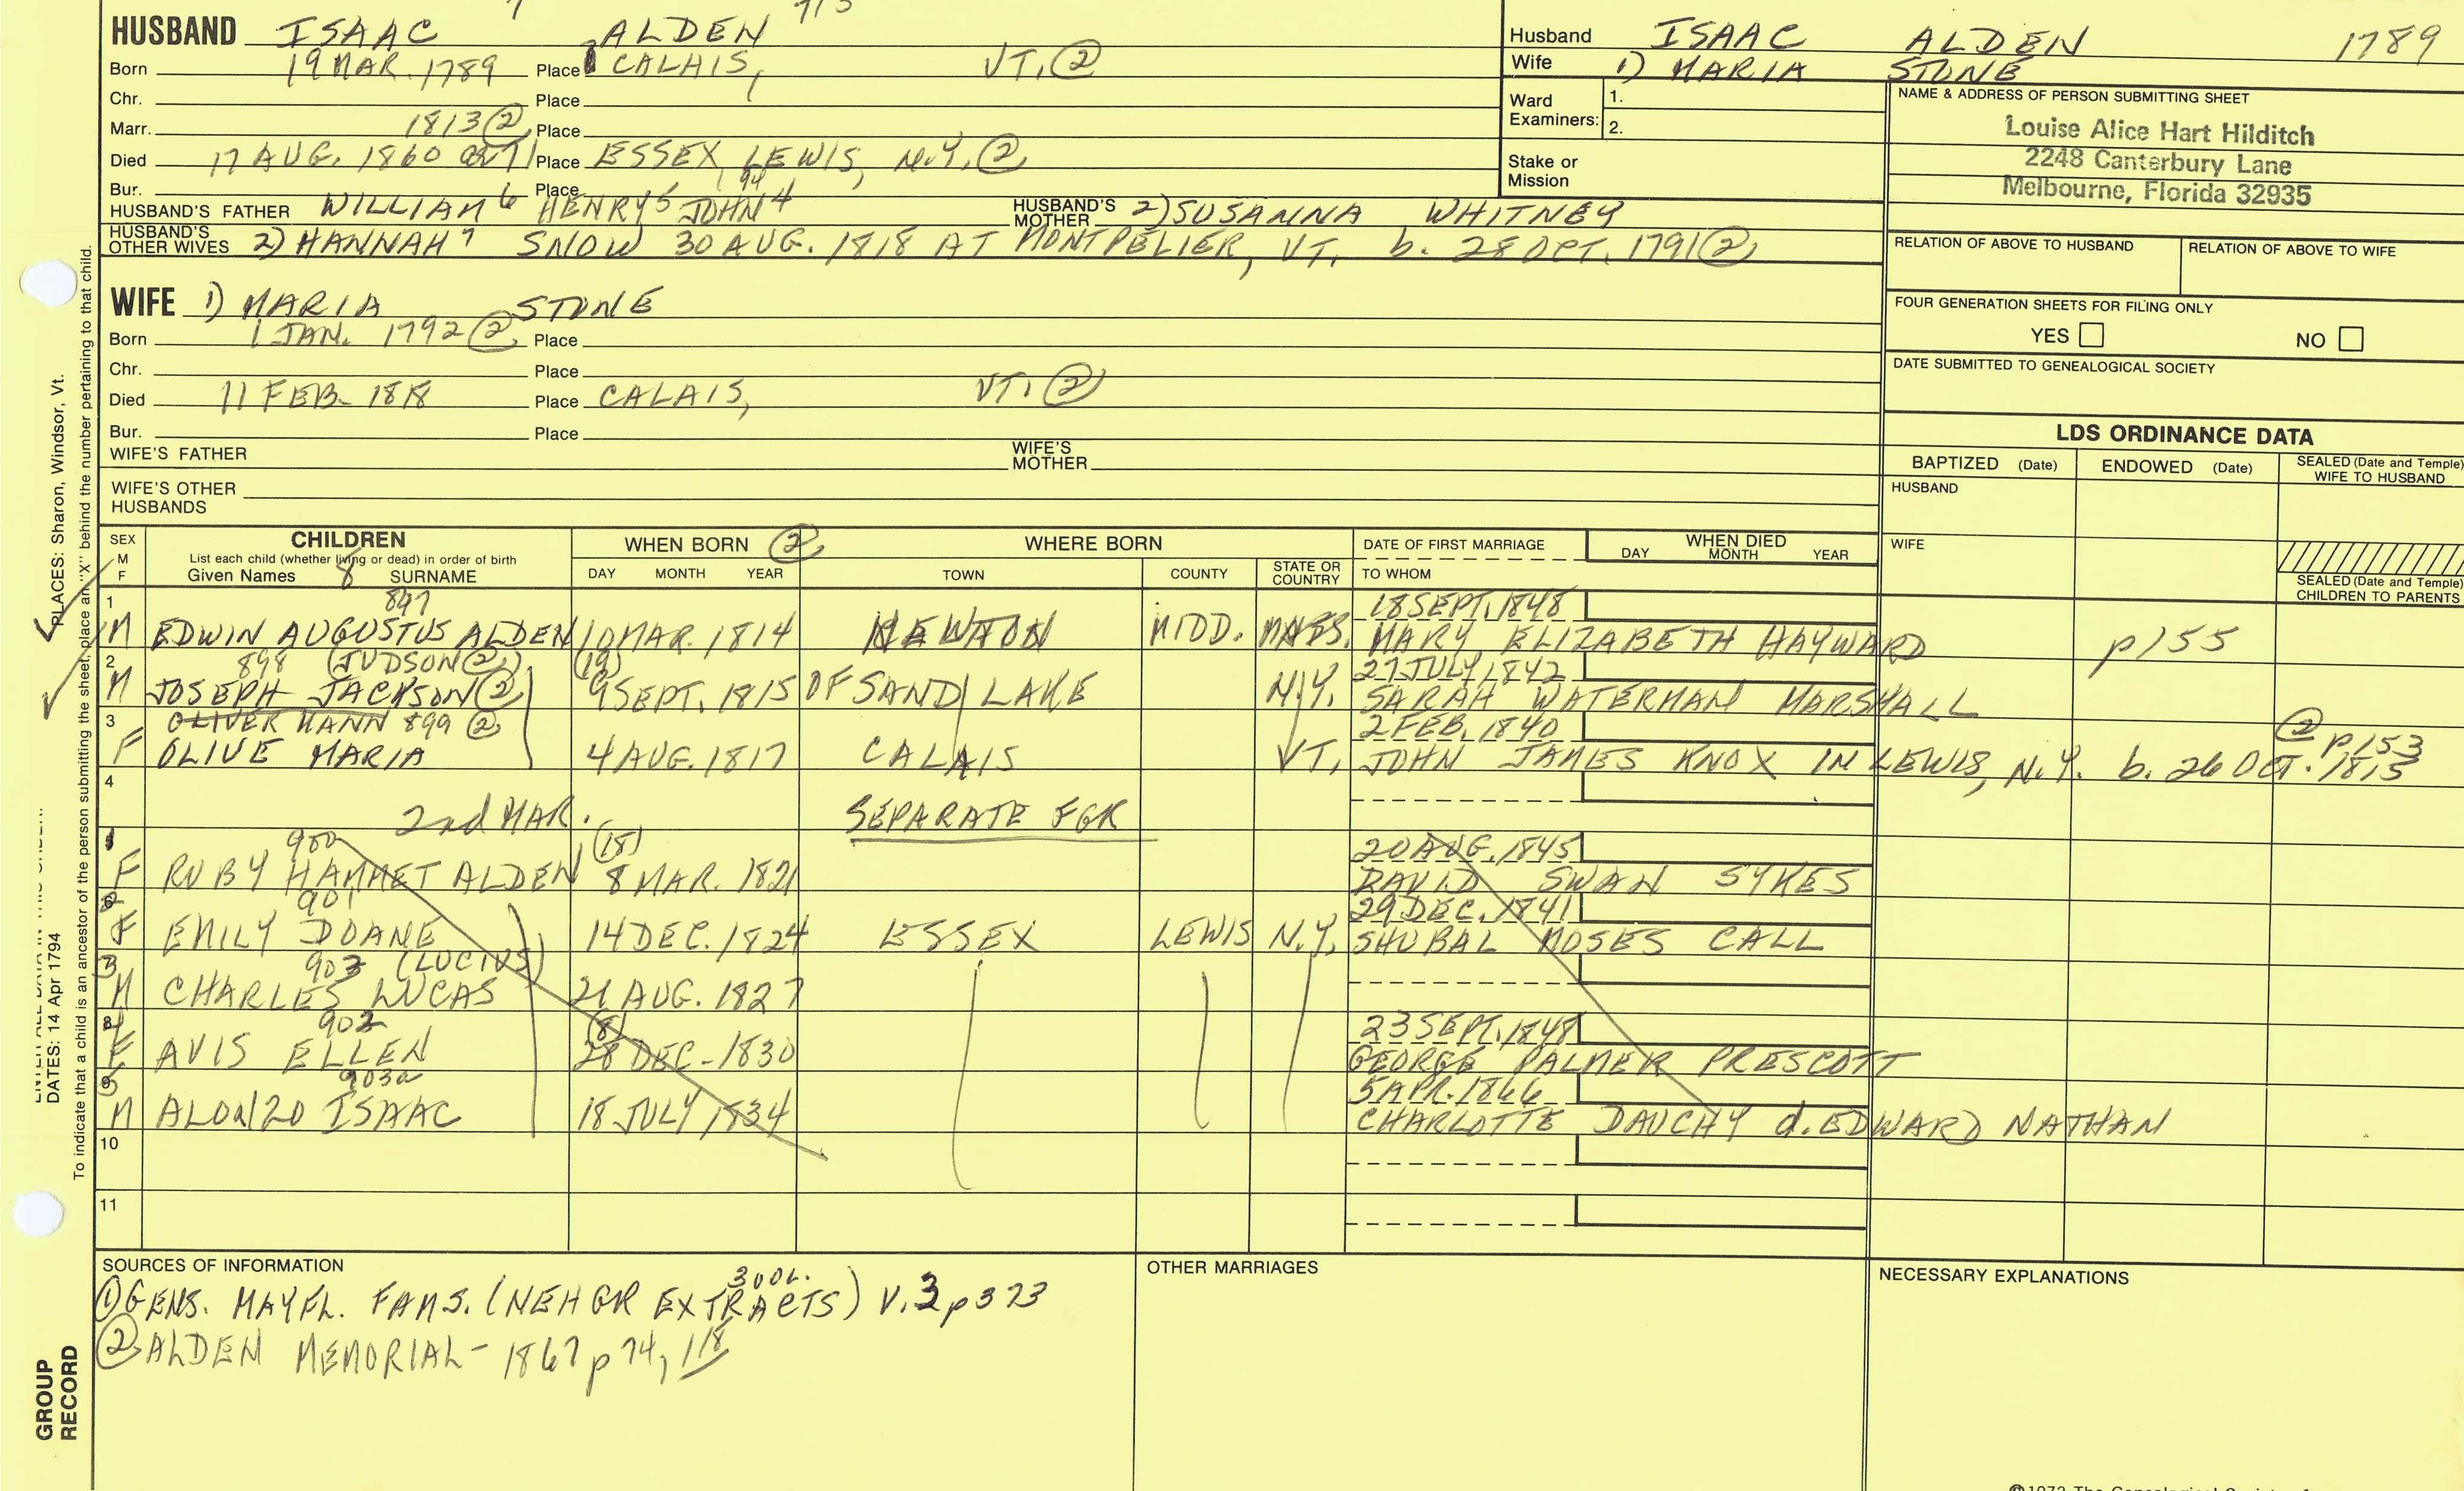 7 713
HUSBAND ISAAC ALDEN
Born 19 MAR. 1789 Place CALAIS, VT. ②
Chr. Place
Marr. 1813 ② Place
Died 17 AUG. 1860 Place ESSEX, LEWIS, N.Y. ②
Bur. Place 94
HUSBAND'S FATHER WILLIAM 6 HENRY 5 JOHN 4 HUSBAND'S MOTHER 2) SUSANNA WHITNEY
HUSBAND'S OTHER WIVES 2) HANNAH 7 SNOW 30 AUG. 1818 AT MONTPELIER, VT. b. 28 OCT. 1791 ②
Husband ISAAC ALDEN 1789
Wife 1) MARIA STONE
Ward Examiners: 1.
2.
Stake or Mission
NAME & ADDRESS OF PERSON SUBMITTING SHEET
Louise Alice Hart Hilditch
2248 Canterbury Lane
Melbourne, Florida 32935
RELATION OF ABOVE TO HUSBAND RELATION OF ABOVE TO WIFE
FOUR GENERATION SHEETS FOR FILING ONLY
YES NO
DATE SUBMITTED TO GENEALOGICAL SOCIETY
WIFE 1) MARIA STONE
Born 1 JAN. 1792 ② Place
Chr. Place
Died 11 FEB. 1818 Place CALAIS, VT. ②
Bur. Place
WIFE'S FATHER WIFE'S MOTHER
WIFE'S OTHER HUSBANDS
LDS ORDINANCE DATA
BAPTIZED (Date) ENDOWED (Date) SEALED (Date and Temple) WIFE TO HUSBAND
HUSBAND
WIFE
SEALED (Date and Temple) CHILDREN TO PARENTS
SEX M F CHILDREN WHEN BORN ② WHERE BORN DATE OF FIRST MARRIAGE WHEN DIED
List each child (whether living or dead) in order of birth DAY MONTH YEAR
Given Names 8 SURNAME DAY MONTH YEAR TOWN COUNTY STATE OR COUNTRY TO WHOM
1 897 18 SEPT. 1848
M EDWIN AUGUSTUS ALDEN 10 MAR. 1814 NEWTON MIDD. MASS. MARY ELIZABETH HAYWARD p155
2 898 (JUDSON ②) (19) 27 JULY 1842
M JOSEPH JACKSON ② 9 SEPT. 1815 OF SAND LAKE N.Y. SARAH WATERMAN MARSHALL
3 OLIVER MANN 899 ② 2 FEB. 1840 ② p153
F OLIVE MARIA 4 AUG. 1817 CALAIS VT. JOHN JAMES KNOX IN LEWIS, N.Y. b. 26 OCT. 1815
4
2nd MAR. SEPARATE FGR
900 (18) 20 AUG. 1845
F RUBY HAMMET ALDEN 8 MAR. 1821 DAVID SWAN SYKES
901 29 DEC. 1841
F EMILY DOANE 14 DEC. 1824 ESSEX LEWIS N.Y. SHUBAL MOSES CALL
903 (LUCIUS)
M CHARLES LUCAS 21 AUG. 1827
902 (8) 23 SEPT. 1848
F AVIS ELLEN 28 DEC-1830 GEORGE PALMER PRESCOTT
903a 5 APR. 1866
M ALONZO ISAAC 18 JULY 1834 CHARLOTTE DAUCHY d. EDWARD NATHAN
10
11
SOURCES OF INFORMATION OTHER MARRIAGES NECESSARY EXPLANATIONS
① GENS. MAYFL. FAMS. (NEHGR EXTRACTS) V.3 p373
② ALDEN MEMORIAL - 1867 p 74, 118
PLACES: Sharon, Windsor, Vt.
DATES: 14 Apr 1794
To indicate that a child is an ancestor of the person submitting the sheet, place an "X" behind the number pertaining to that child.
GROUP RECORD